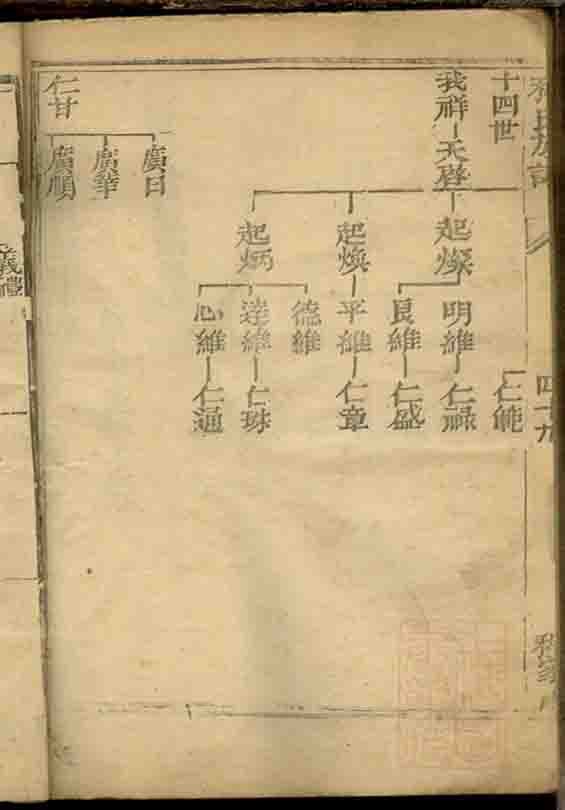 十四世
我祥
天啓
起燦
起煥
起炳
明維
良維
平維
德維
達維
心維
仁能
仁祿
仁盛
仁章
仁珠
仁通
仁甘
廣日
廣華
廣順
四十九
義禮